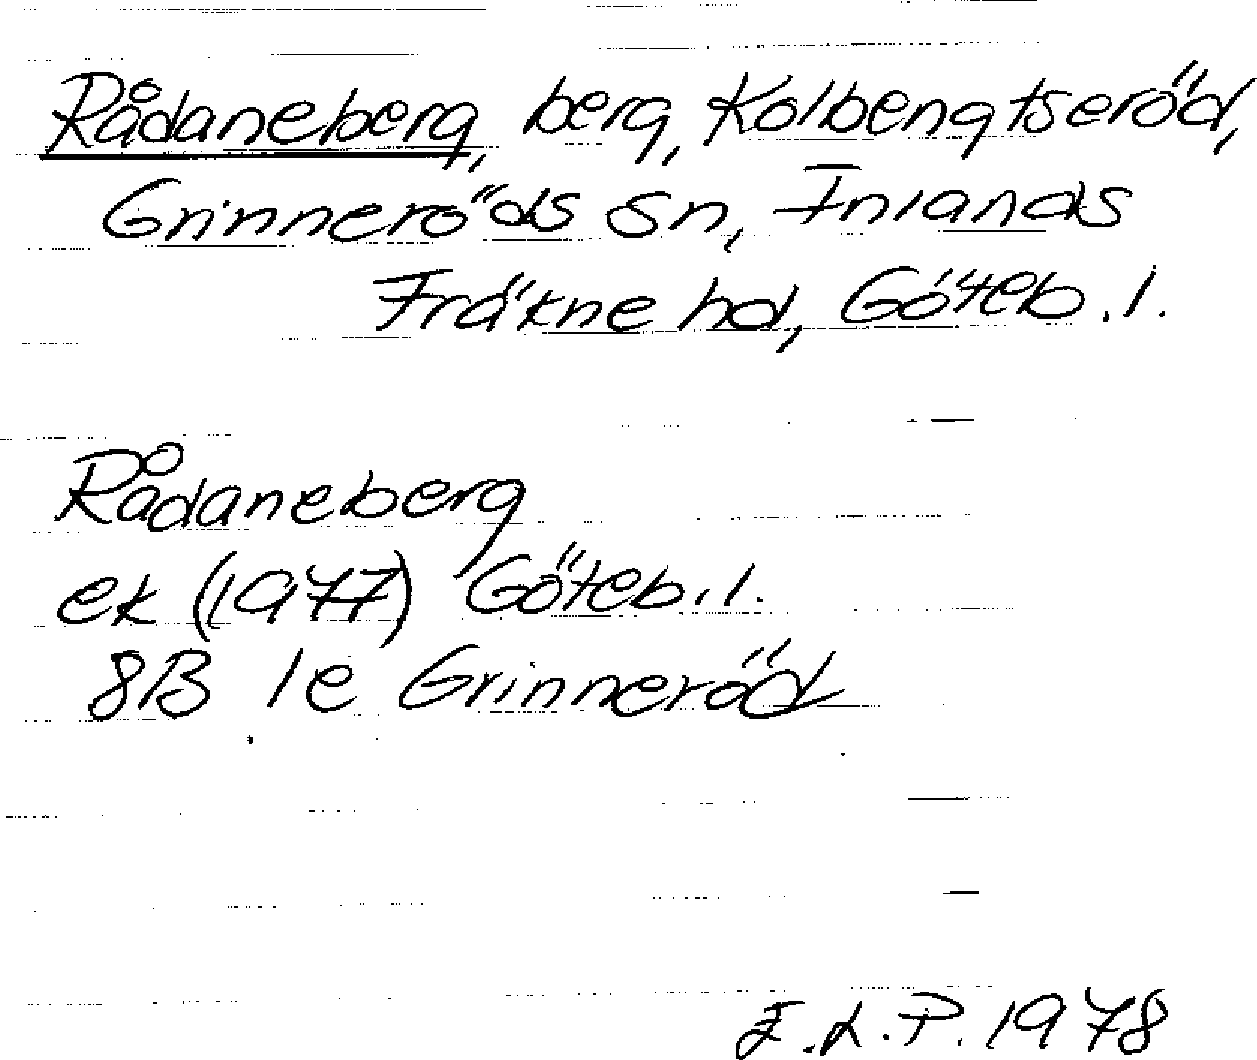 Rådaneberg, berg, Kolbengtseröd,
Grinneröds sn, Inlands
Fräkne hd, Göteb. l.
Rådaneberg
ek (1977) Göteb. l.
8B 1e Grinneröd
E.L.P. 1978